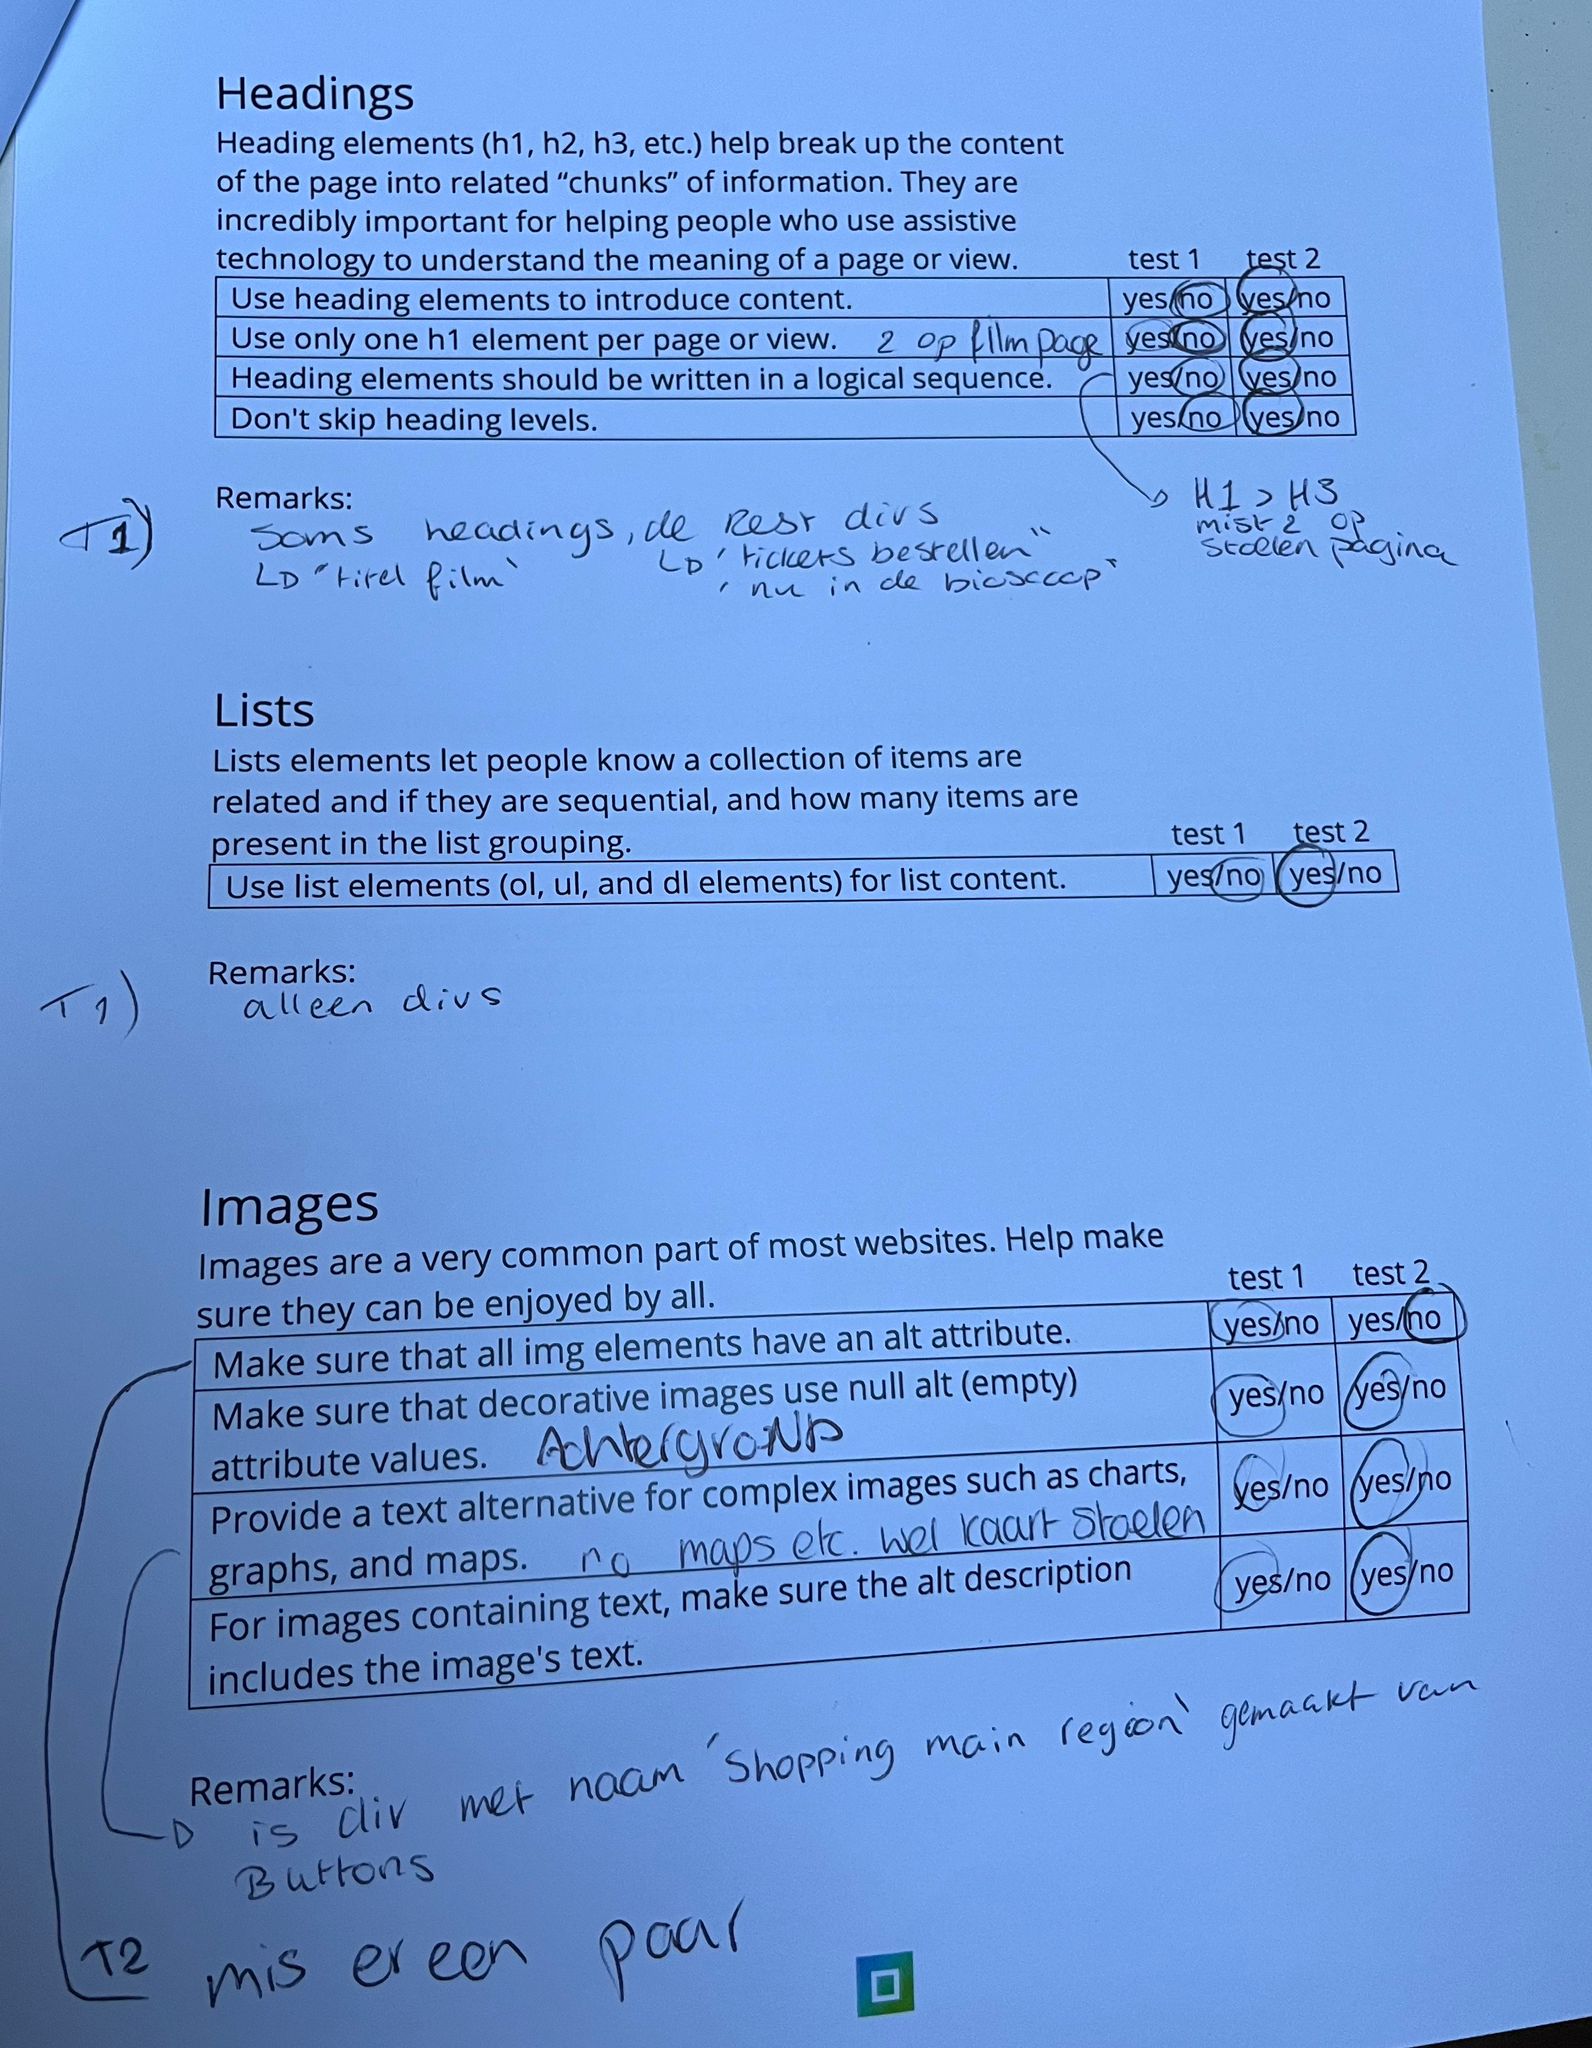 Headings
Heading elements (h1, h2, h3, etc.) help break up the content
of the page into related “chunks” of information. They are
incredibly important for helping people who use assistive
technology to understand the meaning of a page or view. test 1 test 2
Use heading elements to introduce content. yes/no yes/no
Use only one h1 element per page or view. 2 op film page yes/no yes/no
Heading elements should be written in a logical sequence. yes/no yes/no
Don't skip heading levels. yes/no yes/no
H1 > H3
mist 2 op
stoelen pagina
Remarks:
T1) Soms headings, de Rest divs
"titel film" 'tickets bestellen"
'nu in de bioscoop"
Lists
Lists elements let people know a collection of items are
related and if they are sequential, and how many items are
present in the list grouping. test 1 test 2
Use list elements (ol, ul, and dl elements) for list content. yes/no yes/no
Remarks:
T1) alleen divs
Images
Images are a very common part of most websites. Help make
sure they can be enjoyed by all. test 1 test 2
Make sure that all img elements have an alt attribute. yes/no yes/no
Make sure that decorative images use null alt (empty) yes/no yes/no
attribute values. AchtergroND
Provide a text alternative for complex images such as charts, yes/no yes/no
graphs, and maps. no maps etc. wel kaart stoelen
For images containing text, make sure the alt description yes/no yes/no
includes the image's text.
Remarks:
is div met naam 'Shopping main region' gemaakt van
Buttons
T2 mis er een paar